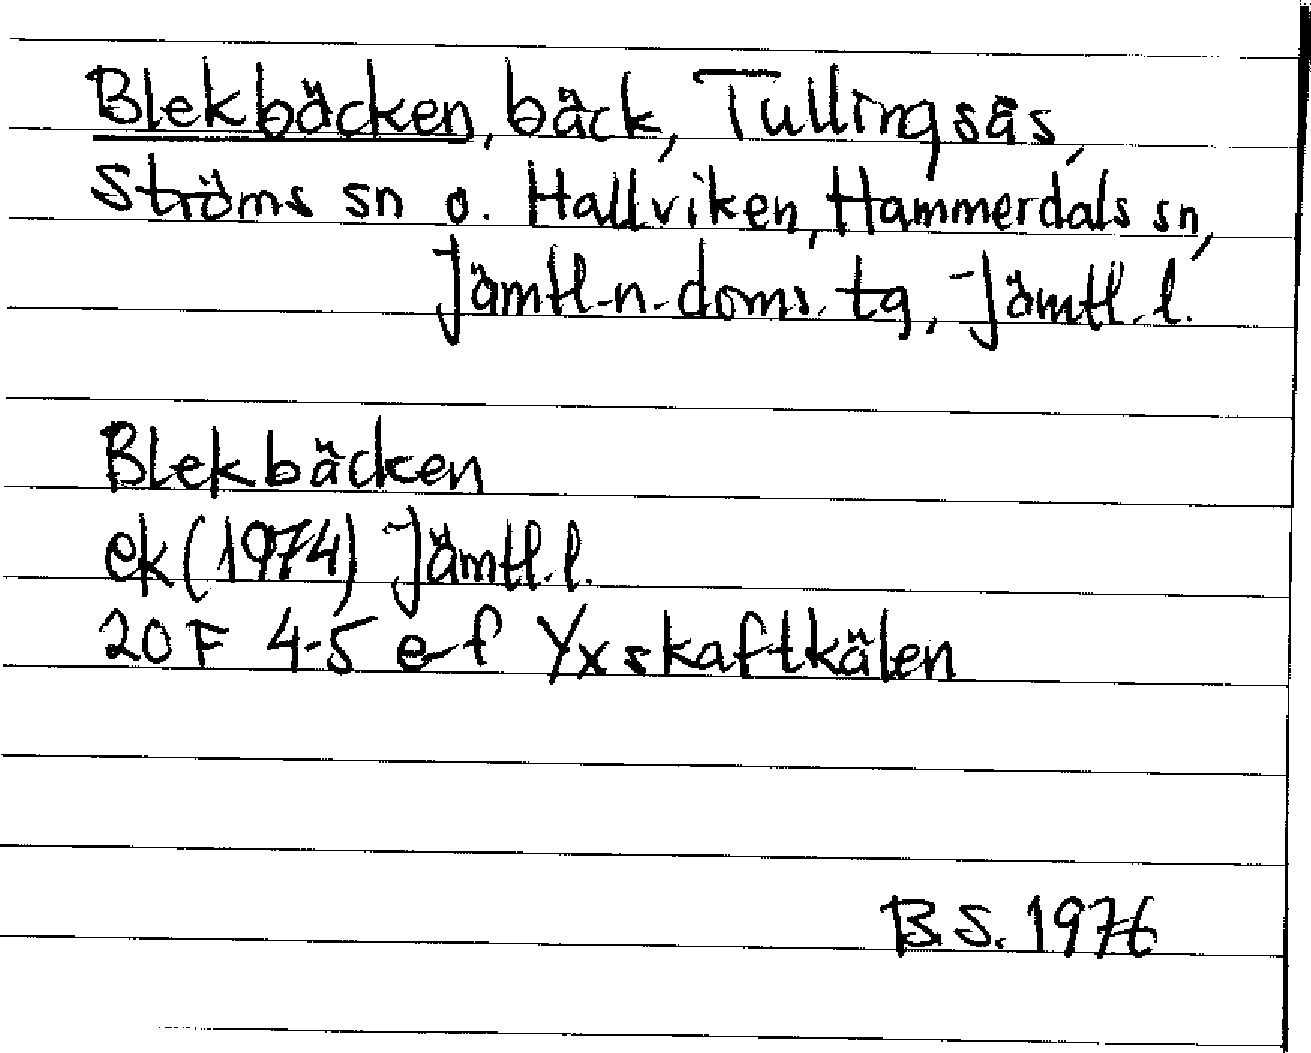 Blekbäcken, bäck, Tullingsås,
Ströms sn o. Hallviken, Hammerdals sn,
Jämtl. n. doms. tg, Jämtl. l.
Blekbäcken
ek (1974) Jämtl. l.
20 F 4-5 e-f Yxskaftkälen
B.S. 1976